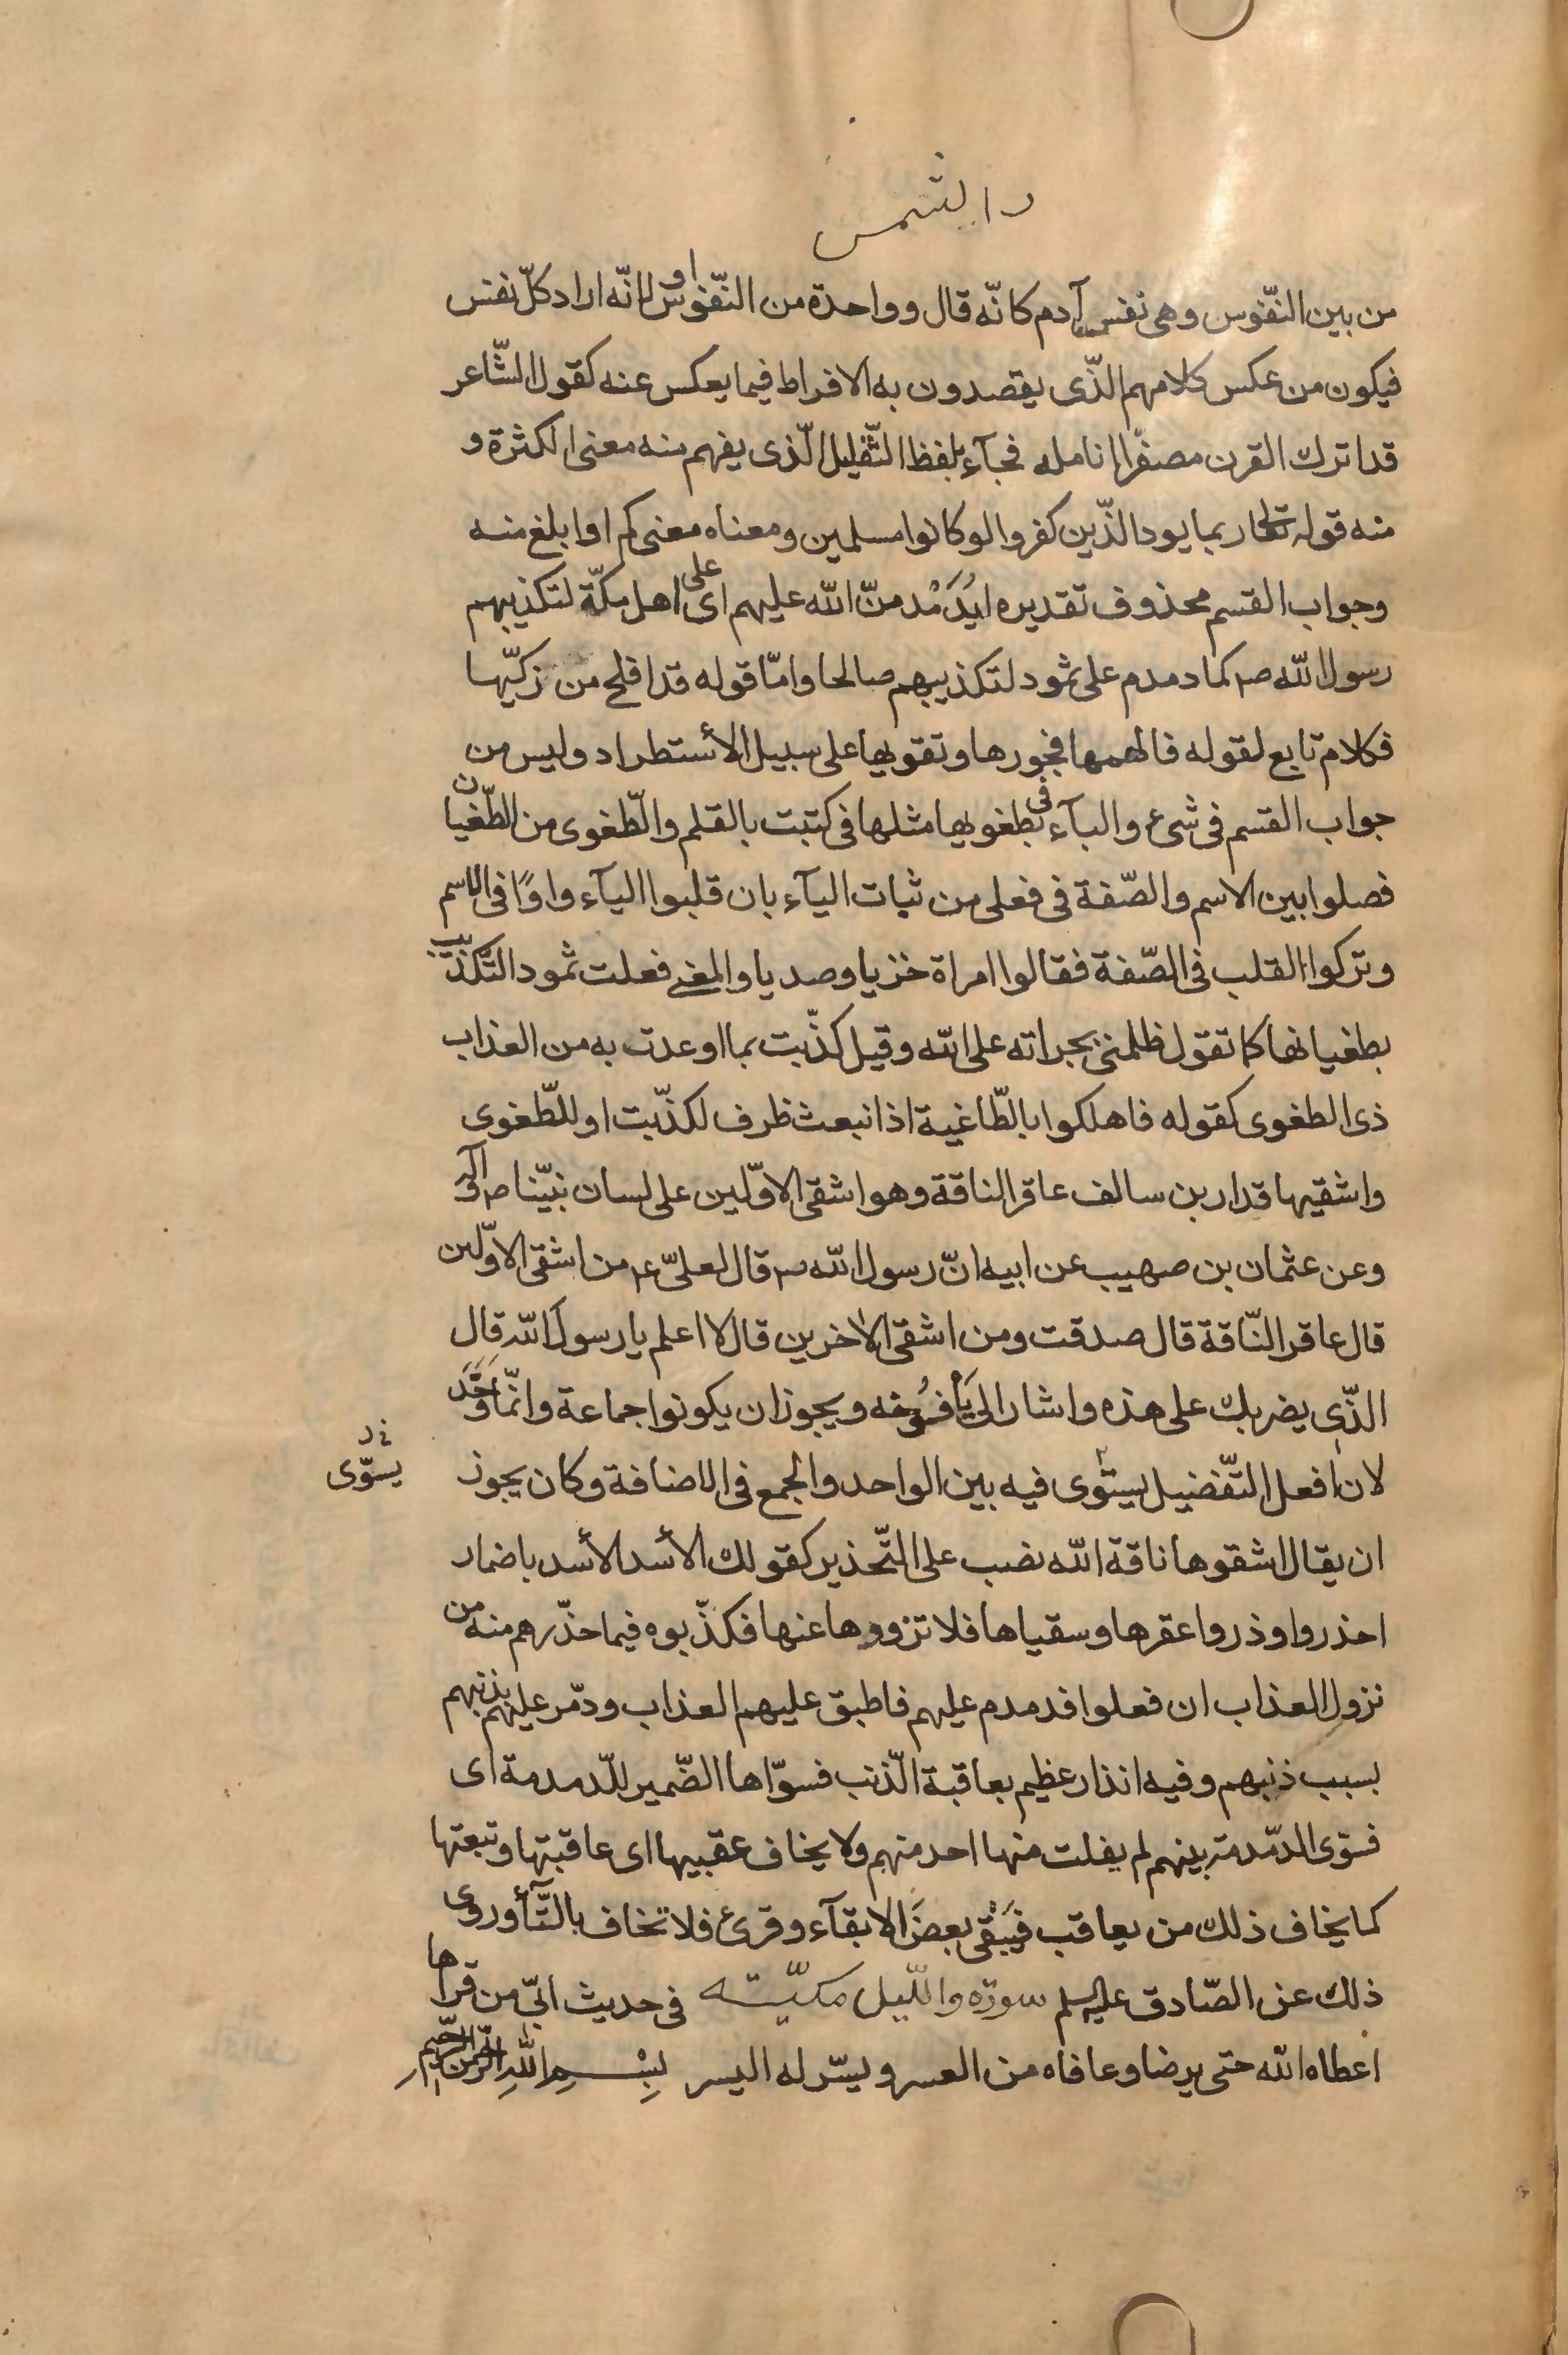 والشمس
من بين النّفوس وهى نفس آدم كانّه قال وواحدة من النّفوس او لانّه اراد كلّ نفس
فيكون من عكس كلامهم الّذى يقصدون به الافراط فيما يعكس عنه كقول الشّاعر
قد اترك القرن مصفّرا انامله فجآء بلفظ التّقليل الّذى يفهم منه معنى الكثرة و
منه قوله تعالى ربما يود الّذين كفروا لو كانوا مسلمين ومعناه معنى كم او ابلغ منه
وجواب القسم محذوف تقديره ليُدَمْدمنّ الله عليهم اى على اهل مكّة لتكذيبهم
رسول الله ص كما دمدم على ثمود لتكذيبهم صالحا وامّا قوله قد افلح من زكّيها
فكلام تابع لقوله فالهمها فجورها وتقويها على سبيل الأستطراد وليس من
جواب القسم فى شىء والبآء فى بطغويها مثلها فى كتبت بالقلم والطّغوى من الطّغيان
فصلوا بين الاسم والصّفة فى فعلى من ثبات اليآء بان قلبوا اليآء واوًا فى الاسم
وتركوا القلب فى الصّفة فقالوا امراة خزيا وصديا والمعنى فعلت ثمود التّكذيب
بطغيانها كما تقول ظلمنى بجراته على الله وقيل كذّبت بما اوعدت به من العذاب
ذى الطغوى كقوله فاهلكوا بالطّاغية اذ انبعث ظرف لكذّبت او للطّغوى
واشقيها قدار بن سالف عاقر الناقة وهو اشقى الاوّلين على لسان نبيّنا ص وآله
وعن عثمان بن صهيب عن ابيه انّ رسول الله ص قال لعلىّ ع من اشقى الاوّلين
قال عاقر النّاقة قال صدقت ومن اشقى الاخرين قال لا اعلم يا رسول الله قال
الّذى يضربك على هذه واشار الى يَأفُوخه ويجوز ان يكونوا جماعة وانّما وَحَّدَ
لان افعل التّفضيل يستوى فيه بين الواحد والجمع فى الاضافة وكان يجوز
يسوّى
ان يقال اشقوها ناقة الله نصب على التّحذير كقولك الأسد الأسد باضمار
احذروا وذروا عقرها وسقياها فلا تزووها عنها فكذّبوه فيما حذّرهم منه من
نزول العذاب ان فعلوا فدمدم عليهم فاطبق عليهم العذاب ودمّر عليهم بذنبهم
بسبب ذنبهم وفيه انذار عظيم بعاقبة الّذنب فسوّاها الضّمير للّدمدمة اى
فسوّى الدّمدمة بينهم لم يفلت منها احد منهم ولا يخاف عقبيها اى عاقبتها وتبعتها
كما يخاف ذلك من يعاقب فيَبْقى بعضَ الابقآء وقرئ فلا تخاف بالتّآ وروى
ذلك عن الصّادق عليه السلم سورة والّليل مكيّته فى حديث ابىّ من قراها
اعطاه الله حتى يرضا وعافاه من العسر ويسّر له اليسر بِسْمِ اللهِ الرّحمن الرّحيم